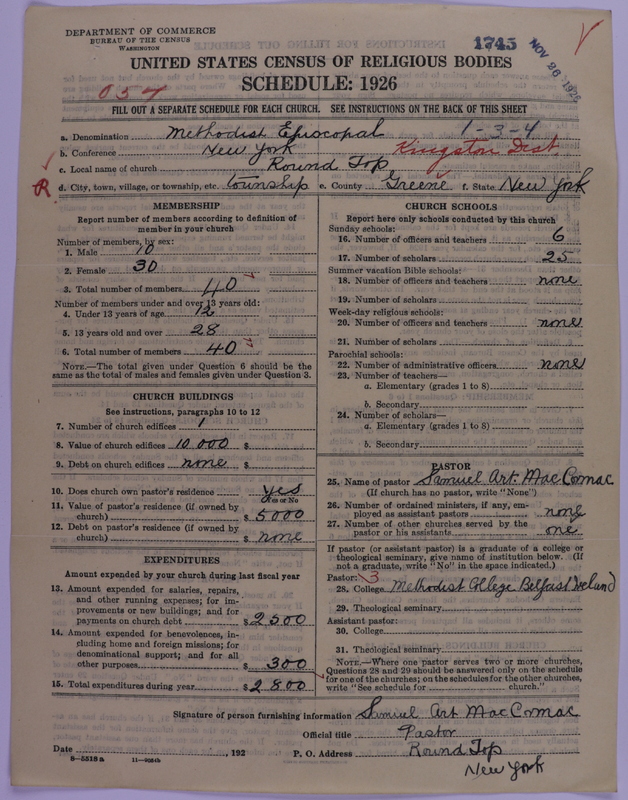 DEPARTMENT OF COMMERCE
BUREAU OF THE CENSUS
WASHINGTON
1745
NOV 26 1928
UNITED STATES CENSUS OF RELIGIOUS BODIES
SCHEDULE: 1926
054
FILL OUT A SEPARATE SCHEDULE FOR EACH CHURCH. SEE INSTRUCTIONS ON THE BACK OF THIS SHEET
a. Denomination Methodist Episcopal 1-3-4
b. Conference New York Kingston Dist.
c. Local name of church Round Top
R d. City, town, village, or township, etc. township e. County Greene f. State New York
MEMBERSHIP
Report number of members according to definition of
member in your church
Number of members, by sex:
1. Male 10
2. Female 30
3. Total number of members 40
Number of members under and over 13 years old:
4. Under 13 years of age 12
5. 13 years old and over 28
6. Total number of members 40
NOTE.—The total given under Question 6 should be
same as the total of males and females given under Question 3.
CHURCH BUILDINGS
See instructions, paragraphs 10 to 12
7. Number of church edifices 1
8. Value of church edifices 10,000 $
9. Debt on church edifices none $
10. Does church own pastor's residence yes
Yes or No
11. Value of pastor's residence (if owned by
church) $ 5000
12. Debt on pastor's residence (if owned by
church) $ none
EXPENDITURES
Amount expended by your church during last fiscal year
13. Amount expended for salaries, repairs,
and other running expenses; for im-
provements or new buildings; and for
payments on church debt $ 2500
14. Amount expended for benevolences, in-
cluding home and foreign missions; for
denominational support; and for all
other purposes $ 300
15. Total expenditures during year $ 2800
CHURCH SCHOOLS
Report here only schools conducted by this church
Sunday schools:
16. Number of officers and teachers 6
17. Number of scholars 25
Summer vacation Bible schools:
18. Number of officers and teachers none
19. Number of scholars
Week-day religious schools:
20. Number of officers and teachers none
21. Number of scholars
Parochial schools:
22. Number of administrative officers none
23. Number of teachers—
a. Elementary (grades 1 to 8)
b. Secondary
24. Number of scholars—
a. Elementary (grades 1 to 8)
b. Secondary
PASTOR
25. Name of pastor Samuel Art. MacCormac
(If church has no pastor, write "None")
26. Number of ordained ministers, if any, em-
ployed as assistant pastors none
27. Number of other churches served by the
pastor or his assistants one
If pastor (or assistant pastor) is a graduate of a college or
theological seminary, give name of institution below. (If
not a graduate, write "No" in the space indicated.)
Pastor: 3
28. College Methodist College Belfast Ireland
29. Theological seminary
Assistant pastor:
30. College
31. Theological seminary
NOTE.—Where one pastor serves two or more churches,
Questions 28 and 29 should be answered only on the schedule
for one of the churches; on the schedules for the other churches,
write "See schedule for church."
Signature of person furnishing information Samuel Art MacCormac
Official title Pastor
Date , 192 P. O. Address Round Top
8-5518a 11-9024b New York